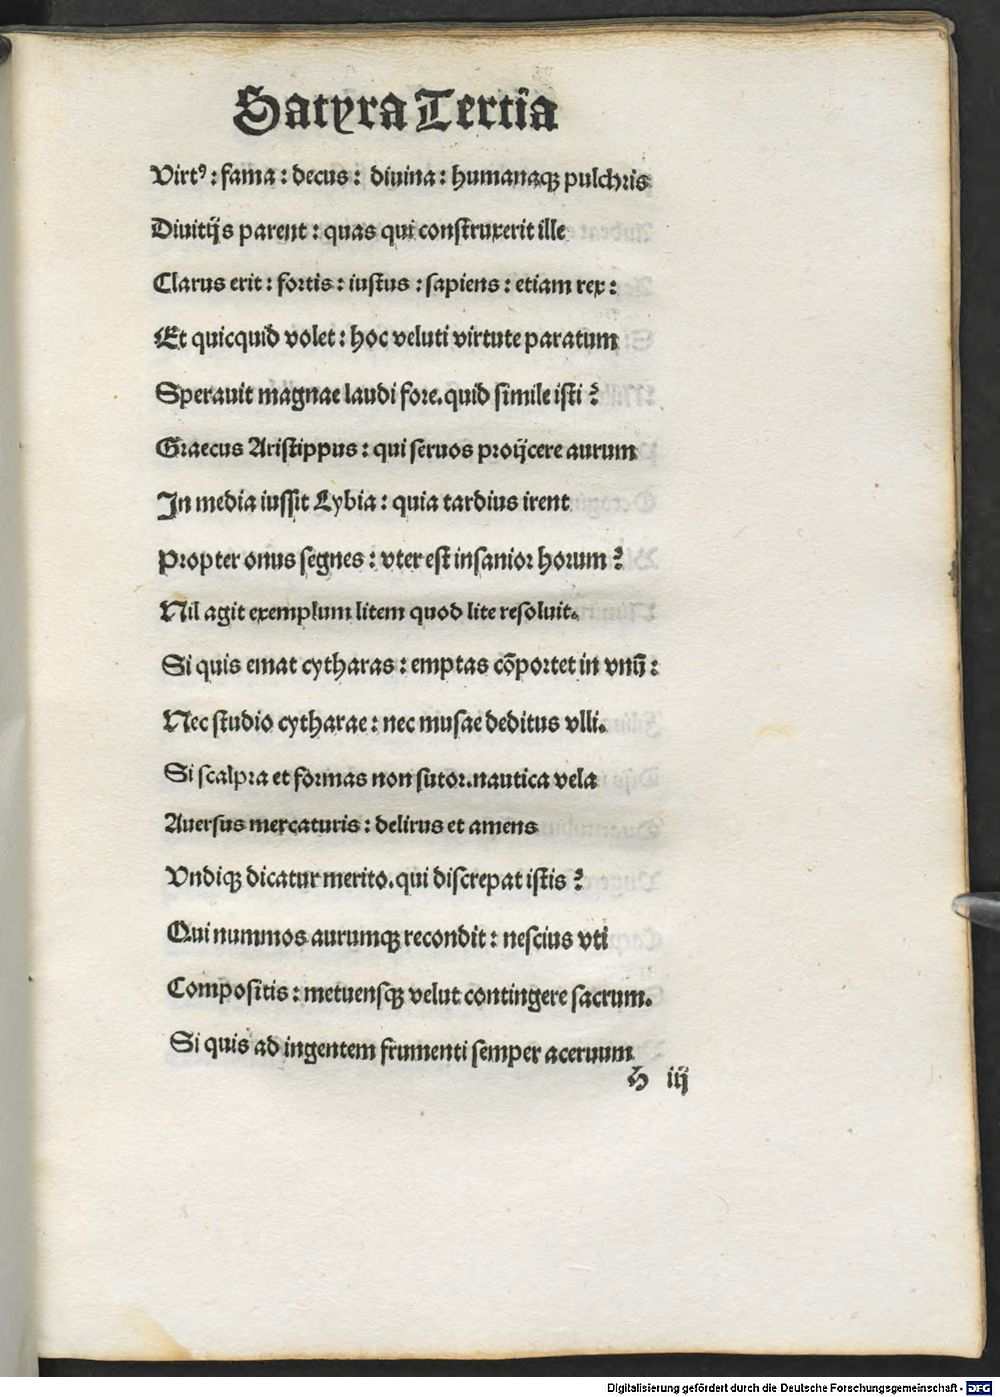 Satyra Tertia
Virtꝰ : fama : decus : diuina : humanaqꝫ pulchris
Diuitijs parent : quas qui construxerit ille
Clarus erit : fortis : iustus : sapiens : etiam rex :
Et quicquid volet : hoc veluti virtute paratum
Sperauit magnae laudi fore. quid simile isti ?
Graecus Aristippus : qui seruos proijcere aurum
In media iussit Lybia : quia tardius irent
Propter onus segnes : vter est insanior horum ?
Nil agit exemplum litem quod lite resoluit.
Si quis emat cytharas : emptas cōportet in vnū :
Nec studio cytharae : nec musae deditus vlli.
Si scalpra et formas non sutor. nautica vela
Auersus mercaturis : delirus et amens
Vndiqꝫ dicatur merito. qui discrepat istis ?
Qui nummos aurumqꝫ recondit : nescius vti
Compositis : metuensqꝫ velut contingere sacrum.
Si quis ad ingentem frumenti semper aceruum
h iij
Digitalisierung gefördert durch die Deutsche Forschungsgemeinschaft - DFG